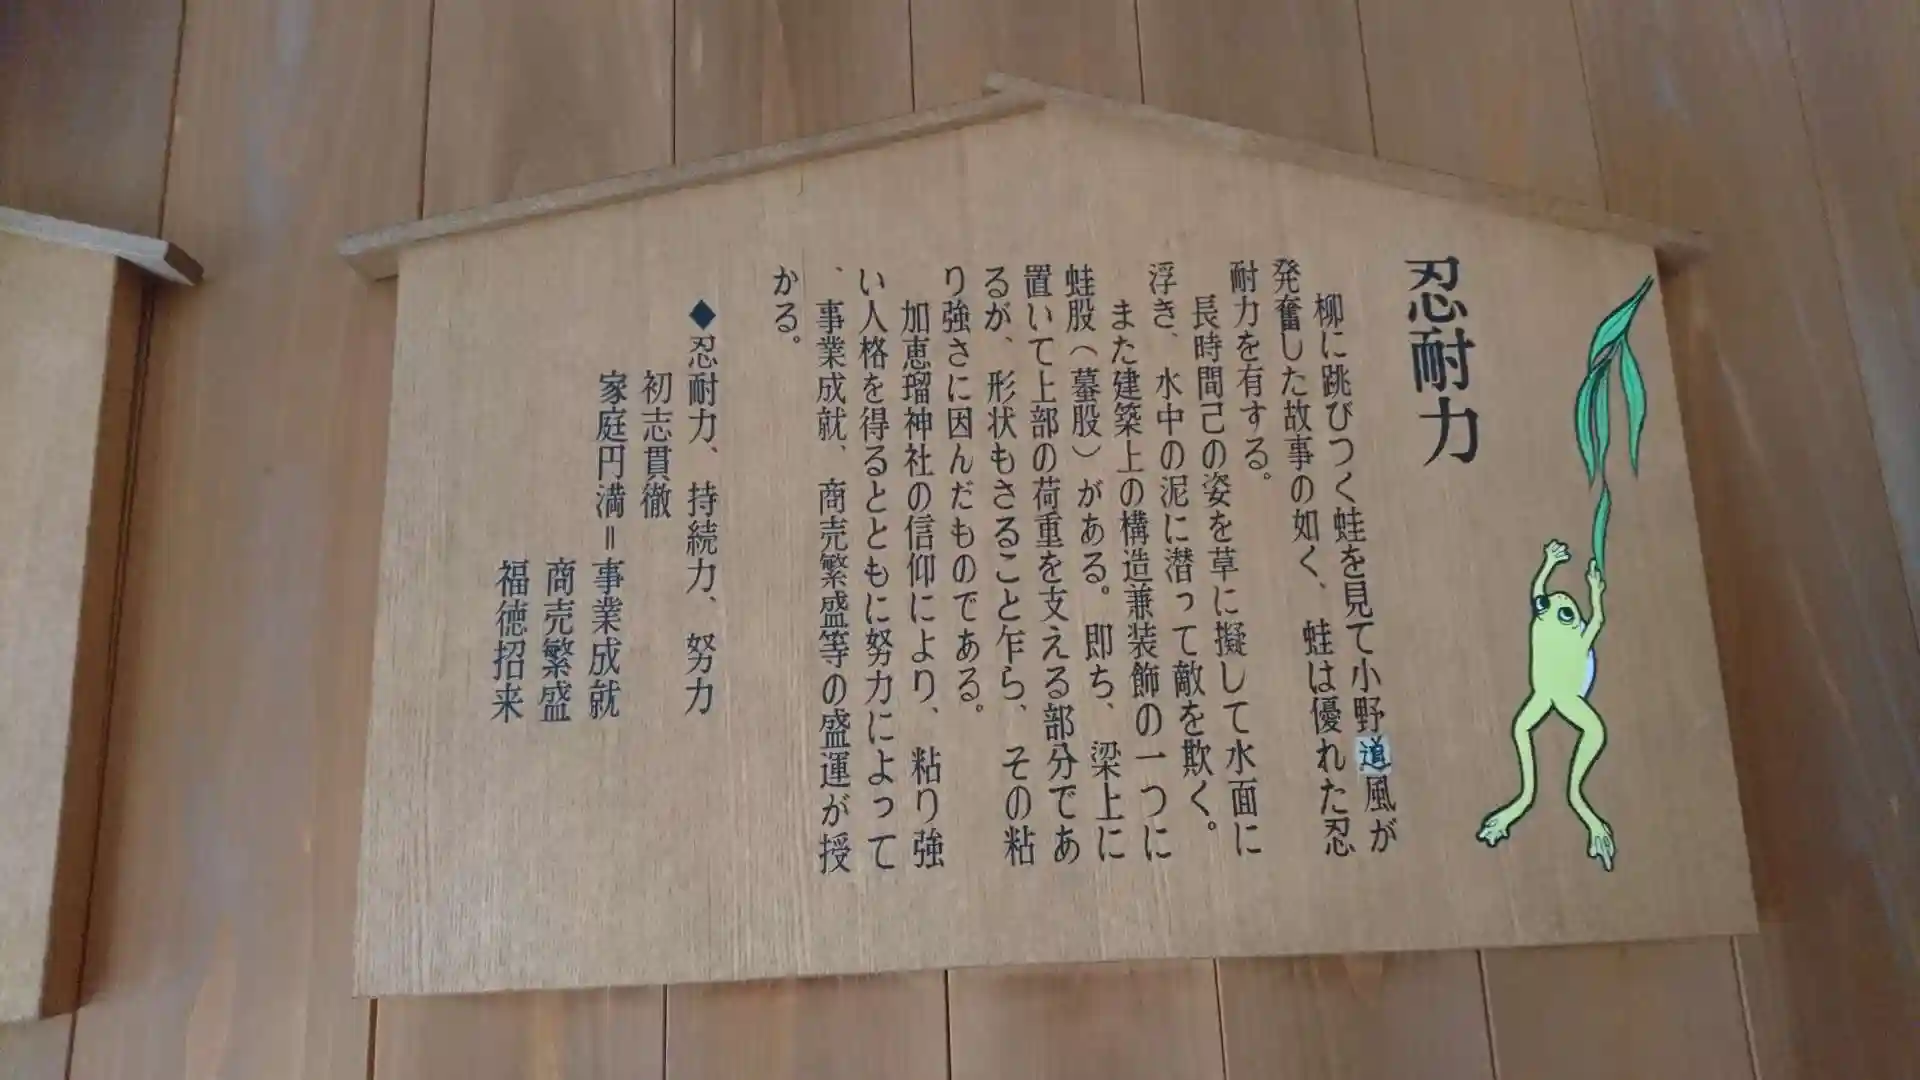 忍耐力
柳に跳びつく蛙を見て小野道風が
発奮した故事の如く、蛙は優れた忍
耐力を有する。
長時間己の姿を草に擬して水面に
浮き、水中の泥に潜って敵を欺く。
また建築上の構造兼装飾の一つに
蛙股（蟇股）がある。即ち、梁上に
置いて上部の荷重を支える部分であ
るが、形状もさること乍ら、その粘
り強さに因んだものである。
加恵瑠神社の信仰により、粘り強
い人格を得るとともに努力によって
、事業成就、商売繁盛等の盛運が授
かる。
◆忍耐力、持続力、努力
初志貫徹
家庭円満＝事業成就
商売繁盛
福徳招来